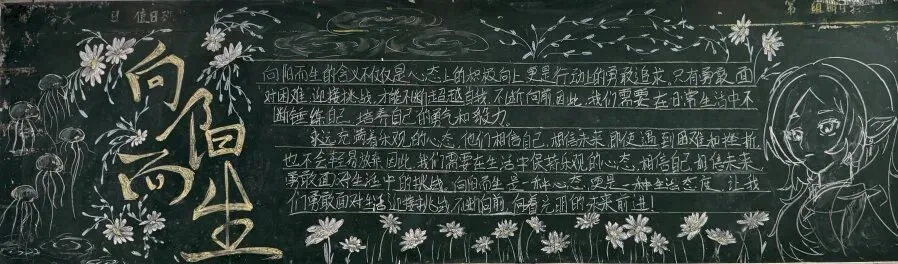 值日班
第 组
向阳而生
向阳而生的含义不仅仅是心态上的积极向上,更是行动上的勇敢追求,只有勇敢面
对困难,迎接挑战,才能不断超越自我,不断向前,因此,我们需要在日常生活中不
断锤练自己,培养自己的勇气和毅力。
永远充满着乐观的心态,他们相信自己,相信未来,即使遇到困难和挫折,
也不会轻易放弃,因此,我们需要在生活中保持乐观的心态,相信自己,相信未来,
勇敢面对生活中的挑战,向阳而生是一种心态,更是一种生活态度,让我
们勇敢面对生活,迎接挑战,不断向前,向着光明的未来前进!